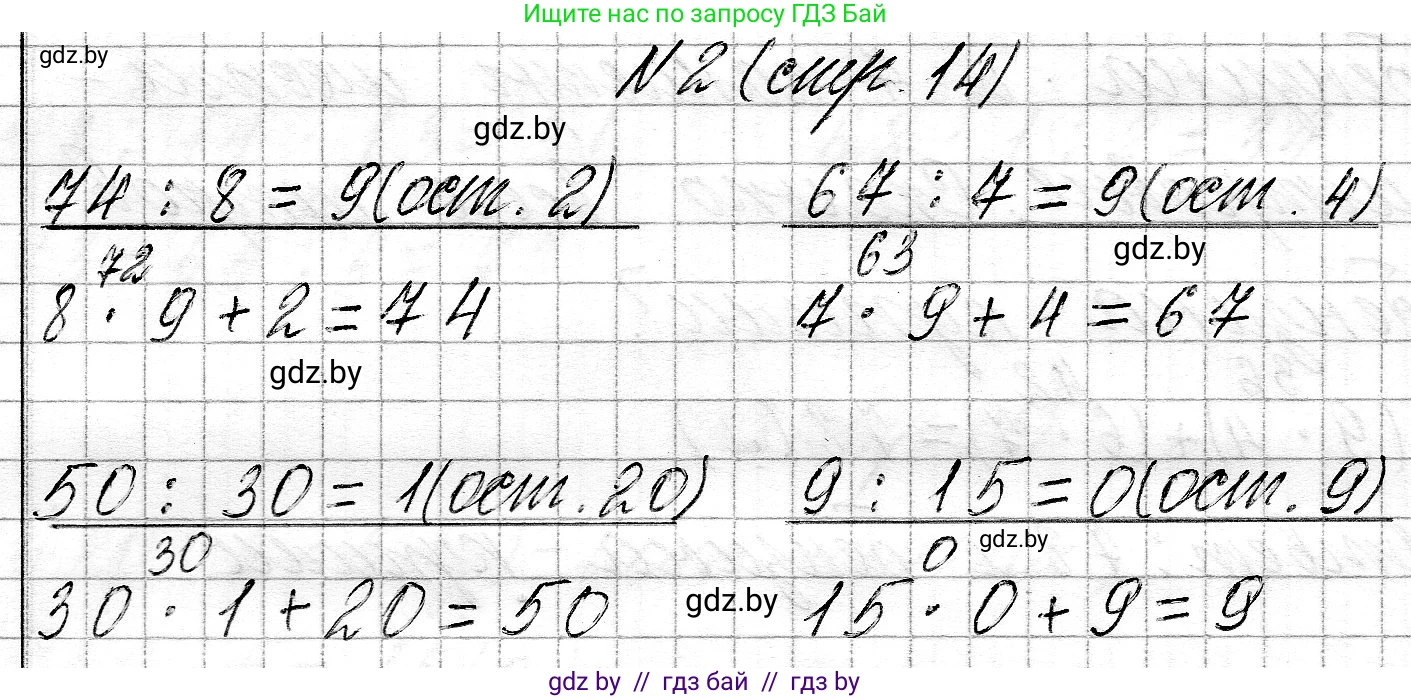 Ищите нас по запросу ГДЗ Бай
gdz.by
№2 (стр. 14)
gdz.by
74 : 8 = 9(ост. 2)
67 : 7 = 9(ост. 4)
72
63
gdz.by
8 · 9 + 2 = 74
7 · 9 + 4 = 67
gdz.by
50 : 30 = 1(ост. 20)
9 : 15 = 0(ост. 9)
30
0
gdz.by
30 · 1 + 20 = 50
gdz.by
15 · 0 + 9 = 9
gdz by // гдз бай // гдз by